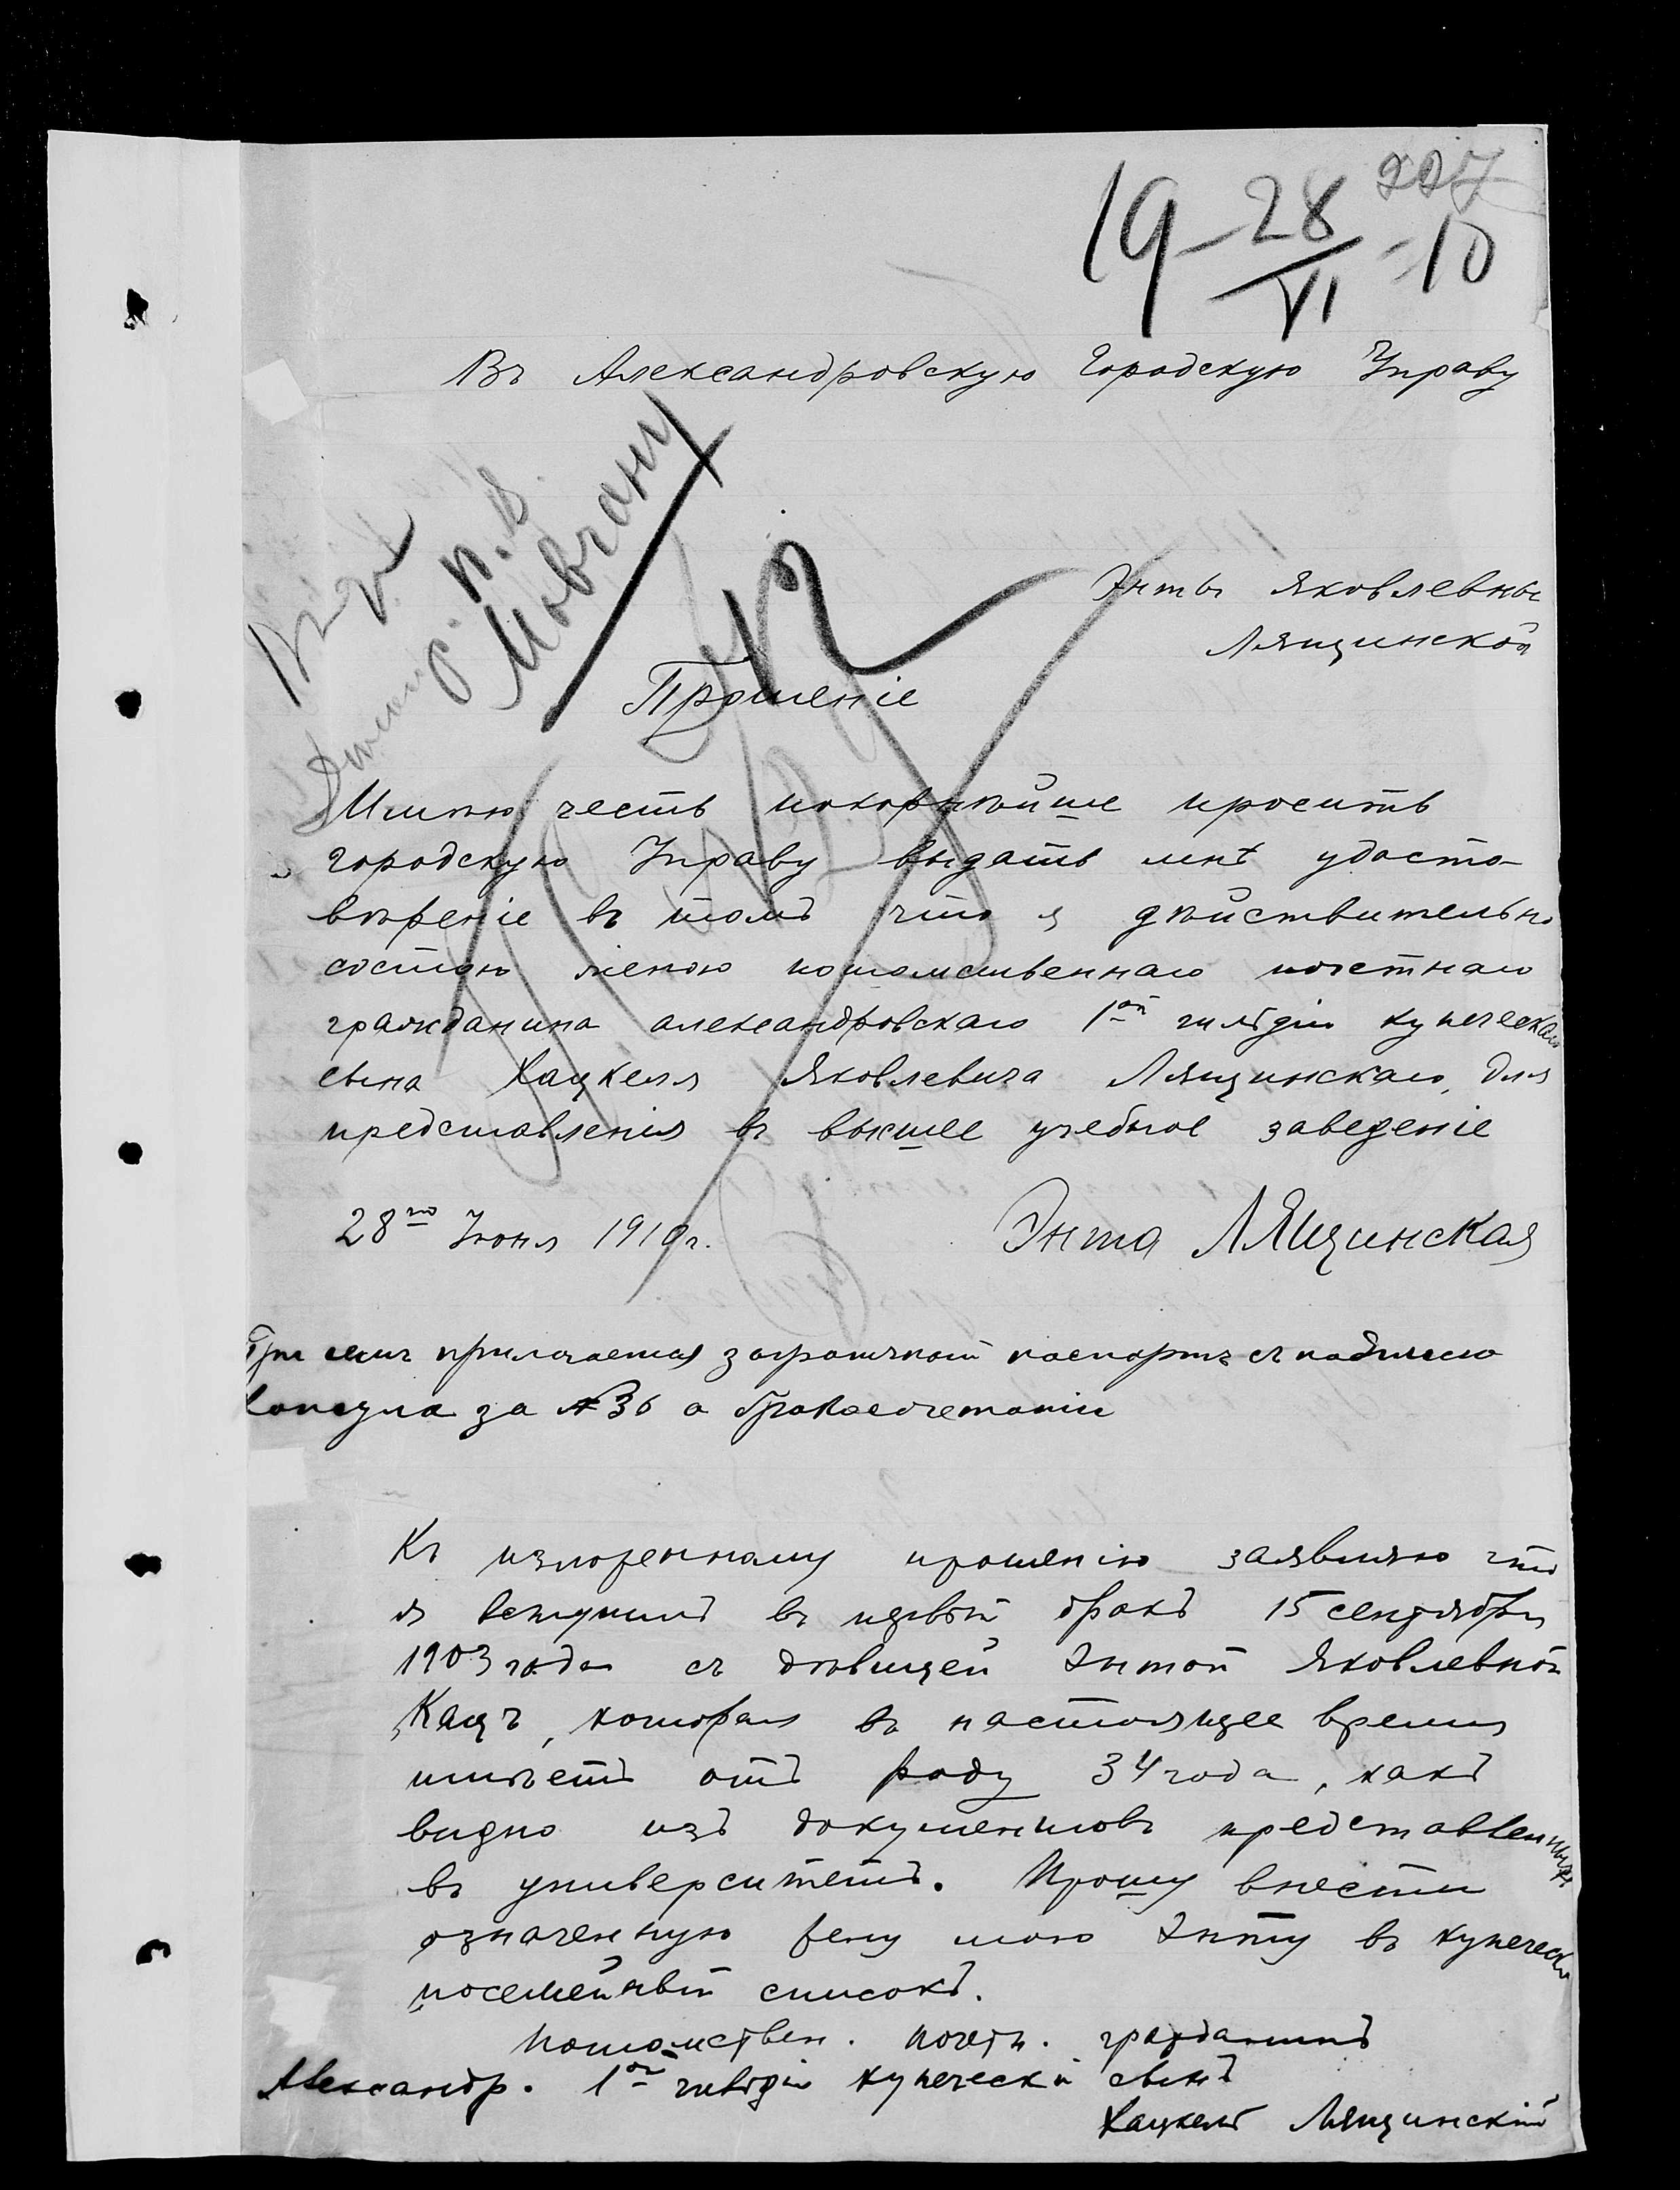 227
19-28/VI-10
Въ Александровскую Городскую Управу
п. в.
Мовчану
Энты Яковлевны
Лящинской
Прошеніе
Имѣю честь покорнѣйше просить
Городскую Управу выдать мнѣ удосто-
вѣреніе въ томъ что я дѣйствительно
состою женою потомственнаго почетнаго
гражданина александровскаго 1ой гильдіи купеческаго
сына Хацкеля Яковлевича Лящинскаго, для
представленія въ высшее учебное заведеніе
28го Іюня 1910 г.
Энта Лящинская
При семъ прилагается заграничный паспортъ съ надписью
Консула за № 36 о бракосочетаніи
Къ изложенному прошенію заявляю что
я вступилъ въ первый бракъ 15 сентября
1903 года съ дѣвицей Энтой Яковлевной
Кацъ, которая въ настоящее время
имѣетъ отъ роду 34 года, какъ
видно изъ документовъ представленныхъ
въ университетъ. Прошу внести
означенную жену мою Энту въ купеческій
посемейный списокъ.
потомствен. почетн. гражданинъ
Александр. 1ой гильдіи купеческій сынъ
Хацкель Лящинскій